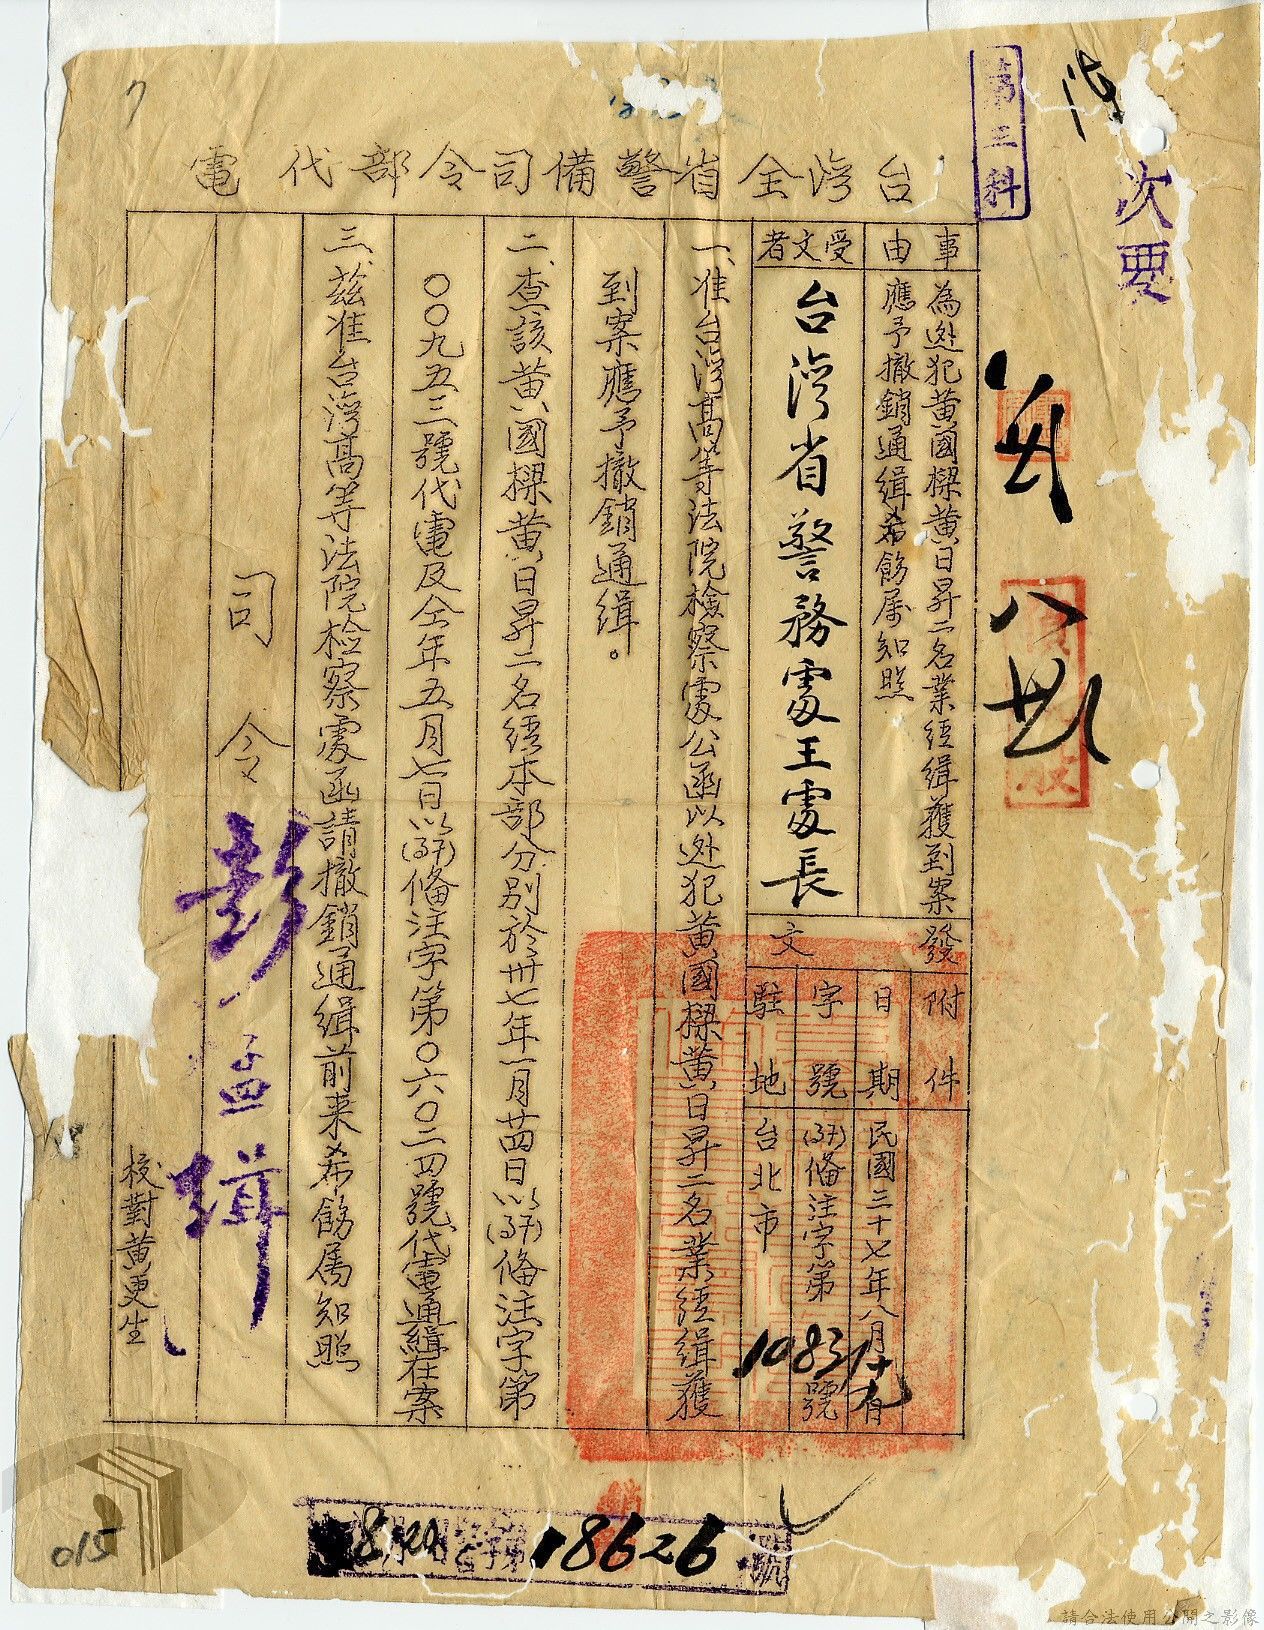 台灣全省警備司令部代電
第三科
次要
事由
為逃犯黃國樑黃日昇二名業經緝獲到案
應予撤銷通緝希飭屬知照
受文者
台灣省警務處王處長
發文
附件
日期
民國三十七年八月十九日
字號
(37)俻注字第10831號
駐地
台北市
一、准台灣高等法院檢察處公函以逃犯黃國樑黃日昇二名業經緝獲
到案應予撤銷通緝。
二、查該黃國樑黃日昇二名經本部分別於卅七年一月廿四日以(37)俻注字第
〇〇九五三號代電及仝年五月七日以(37)俻注字第〇六〇二四號代電通緝在案
三、茲准台灣高等法院檢察處函請撤銷通緝前來希飭属知照
司令
彭孟緝
校對黃更生
8 20
18626
號
015
請合法使用公開之影像